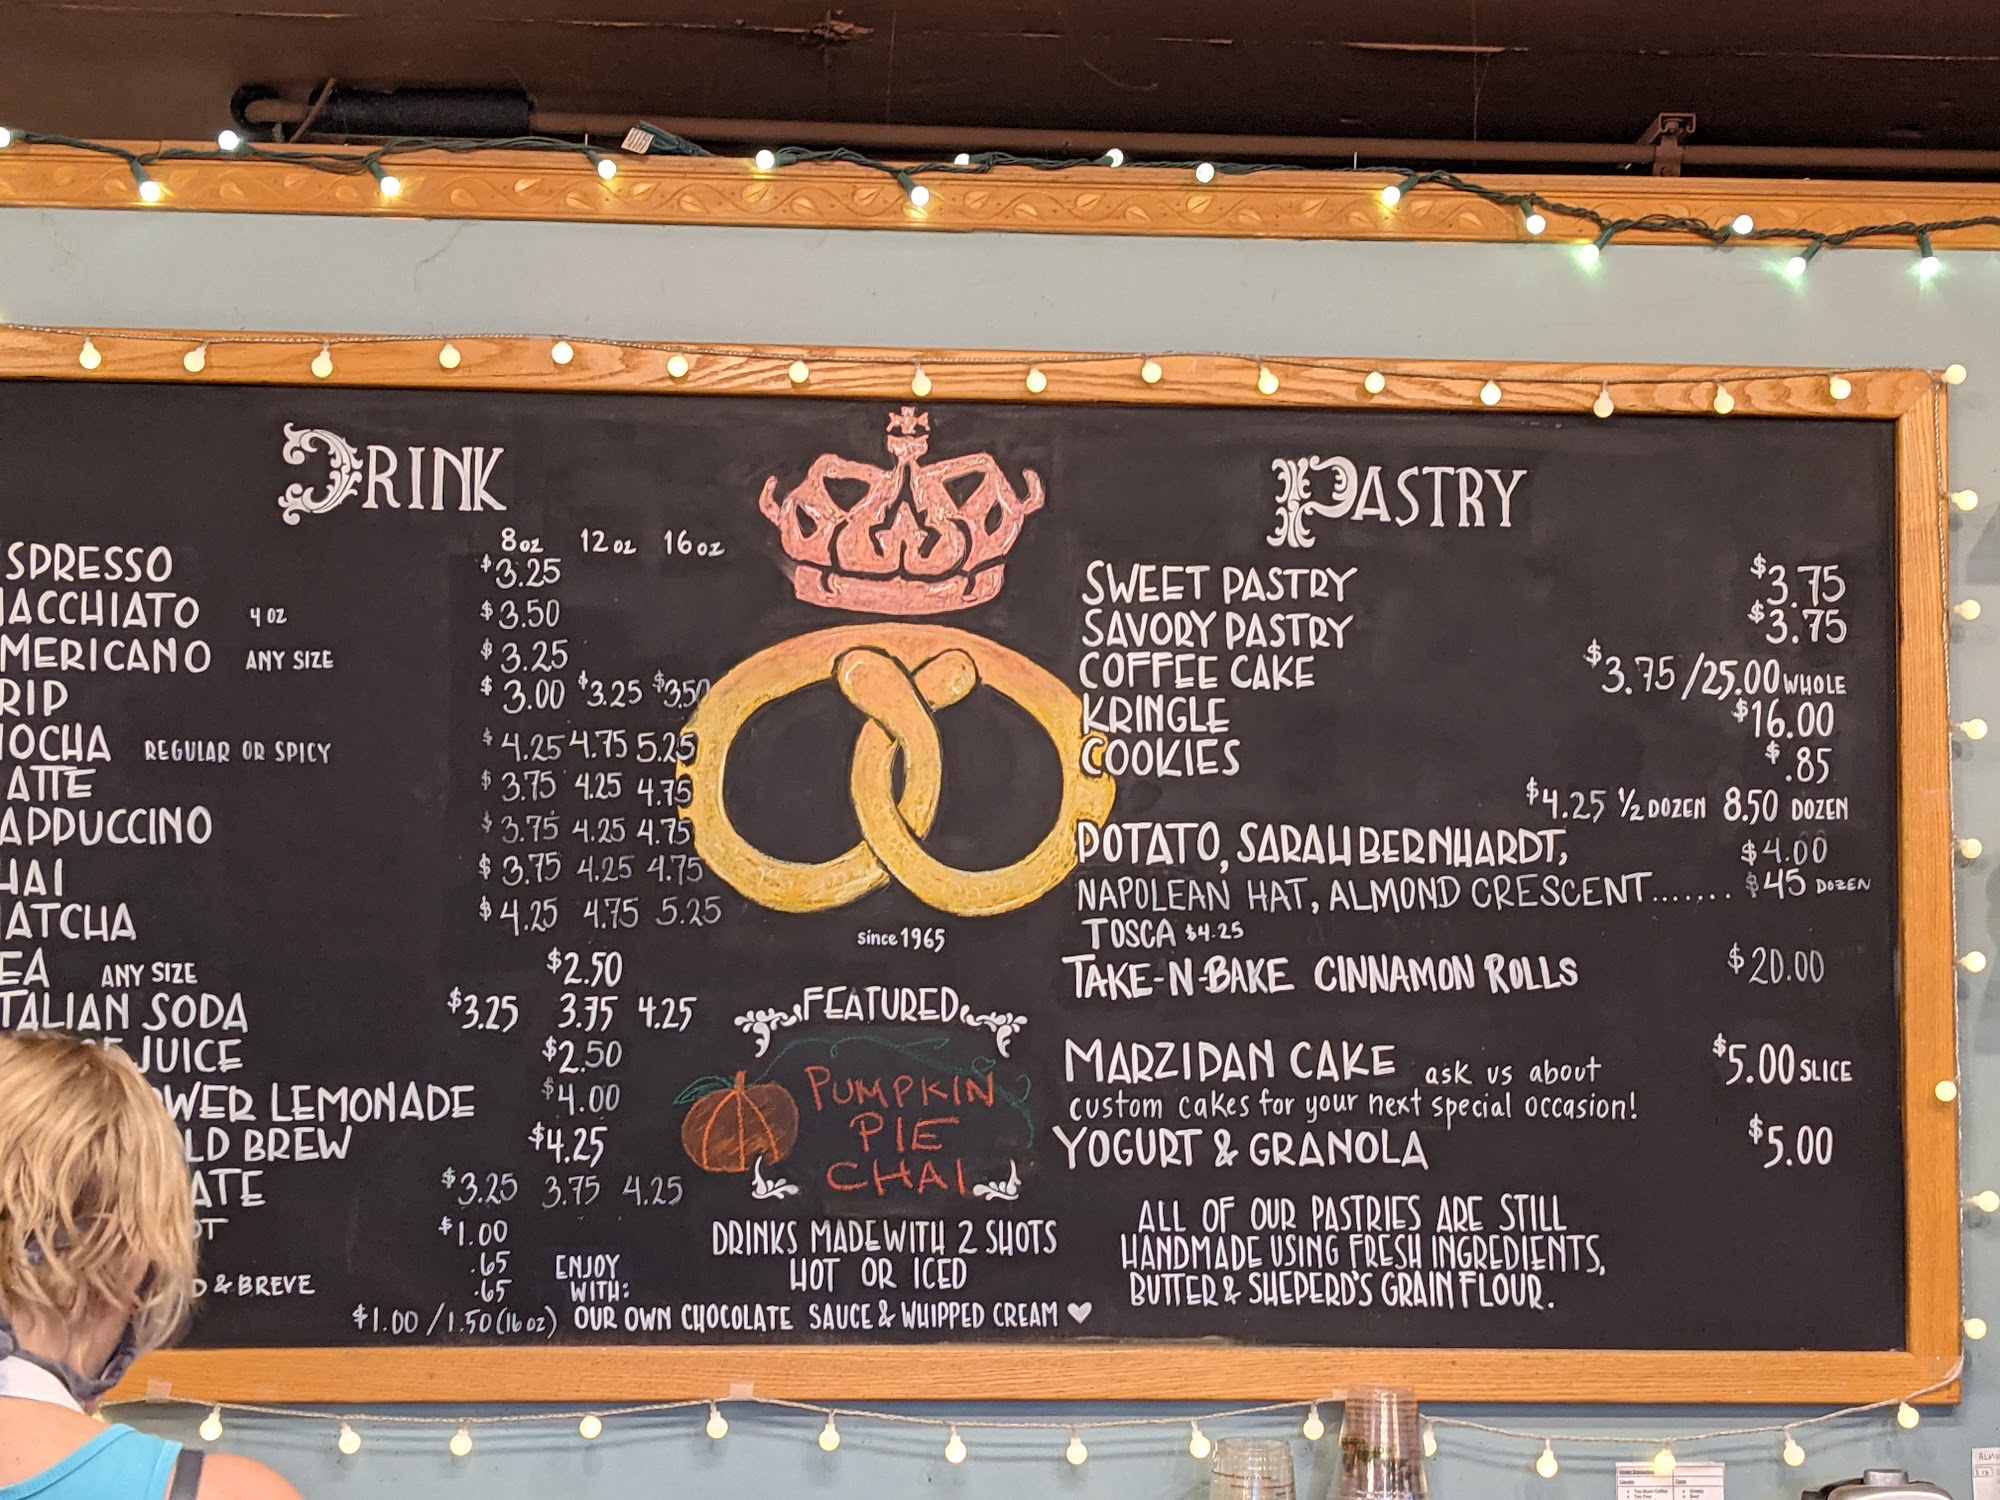 DRINK
8oz 12oz 16oz
SPRESSO $3.25
ACCHIATO 4 OZ $3.50
MERICANO ANY SIZE $3.25
RIP $3.00 $3.25 $3.50
OCHA REGULAR OR SPICY $4.25 4.75 5.25
ATTE $3.75 4.25 4.75
APPUCCINO $3.75 4.25 4.75
HAI $3.75 4.25 4.75
ATCHA $4.25 4.75 5.25
EA ANY SIZE $2.50
TALIAN SODA $3.25 3.75 4.25
JUICE $2.50
WER LEMONADE $4.00
LD BREW $4.25
ATE $3.25 3.75 4.25
OT $1.00
.65
D & BREVE .65
ENJOY
WITH:
$1.00/1.50(16oz) OUR OWN CHOCOLATE SAUCE & WHIPPED CREAM
since 1965
FEATURED
PUMPKIN
PIE
CHAI
DRINKS MADE WITH 2 SHOTS
HOT OR ICED
PASTRY
SWEET PASTRY $3.75
SAVORY PASTRY $3.75
COFFEE CAKE $3.75/25.00 WHOLE
KRINGLE $16.00
COOKIES $.85
$4.25 ½ DOZEN 8.50 DOZEN
POTATO, SARAH BERNHARDT, $4.00
NAPOLEAN HAT, ALMOND CRESCENT....... $45 DOZEN
TOSCA $4.25
TAKE-N-BAKE CINNAMON ROLLS $20.00
MARZIPAN CAKE ask us about $5.00 SLICE
custom cakes for your next special occasion!
YOGURT & GRANOLA $5.00
ALL OF OUR PASTRIES ARE STILL
HANDMADE USING FRESH INGREDIENTS,
BUTTER & SHEPERD'S GRAIN FLOUR.